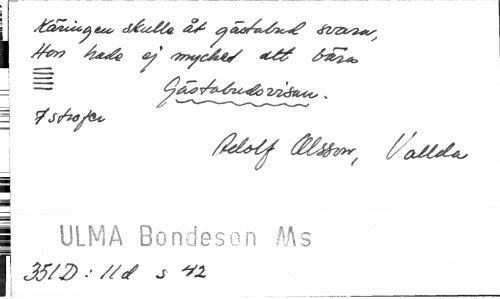 Käringen skulle åt gästabud svara,
Hon hade ej mycket att bära
Gästabudsvisan.
7 strofer
Adolf Olsson, Vallda
ULMA Bondeson Ms
351D : 11d s 42